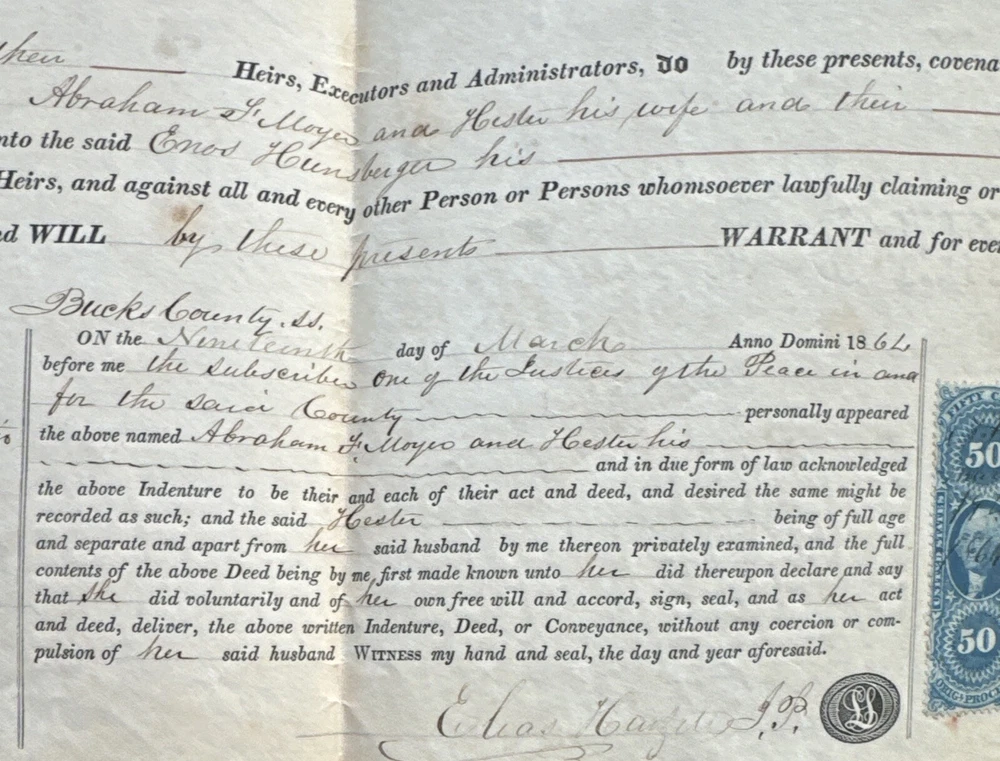 Heirs, Executors and Administrators, DO by these presents, covena
Abraham F. Moyer and Hester his wife and their
nto the said Enos Hunsberger his
Heirs, and against all and every other Person or Persons whomsoever lawfully claiming or
nd WILL by these presents WARRANT and for ever
Bucks County. ss.
ON the Nineteenth day of March Anno Domini 1864
before me the subscriber one of the Justices of the Peace in and
for the said County personally appeared
the above named Abraham F. Moyer and Hester his
and in due form of law acknowledged
the above Indenture to be their and each of their act and deed, and desired the same might be
recorded as such; and the said Hester being of full age
and separate and apart from her said husband by me thereon privately examined, and the full
contents of the above Deed being by me first made known unto her did thereupon declare and say
that she did voluntarily and of her own free will and accord, sign, seal, and as her act
and deed, deliver, the above written Indenture, Deed, or Conveyance, without any coercion or com-
pulsion of her said husband WITNESS my hand and seal, the day and year aforesaid.
Elias J.P.
LS
FIFTY C
50
UNITED STATES
50
ORIG: PROC